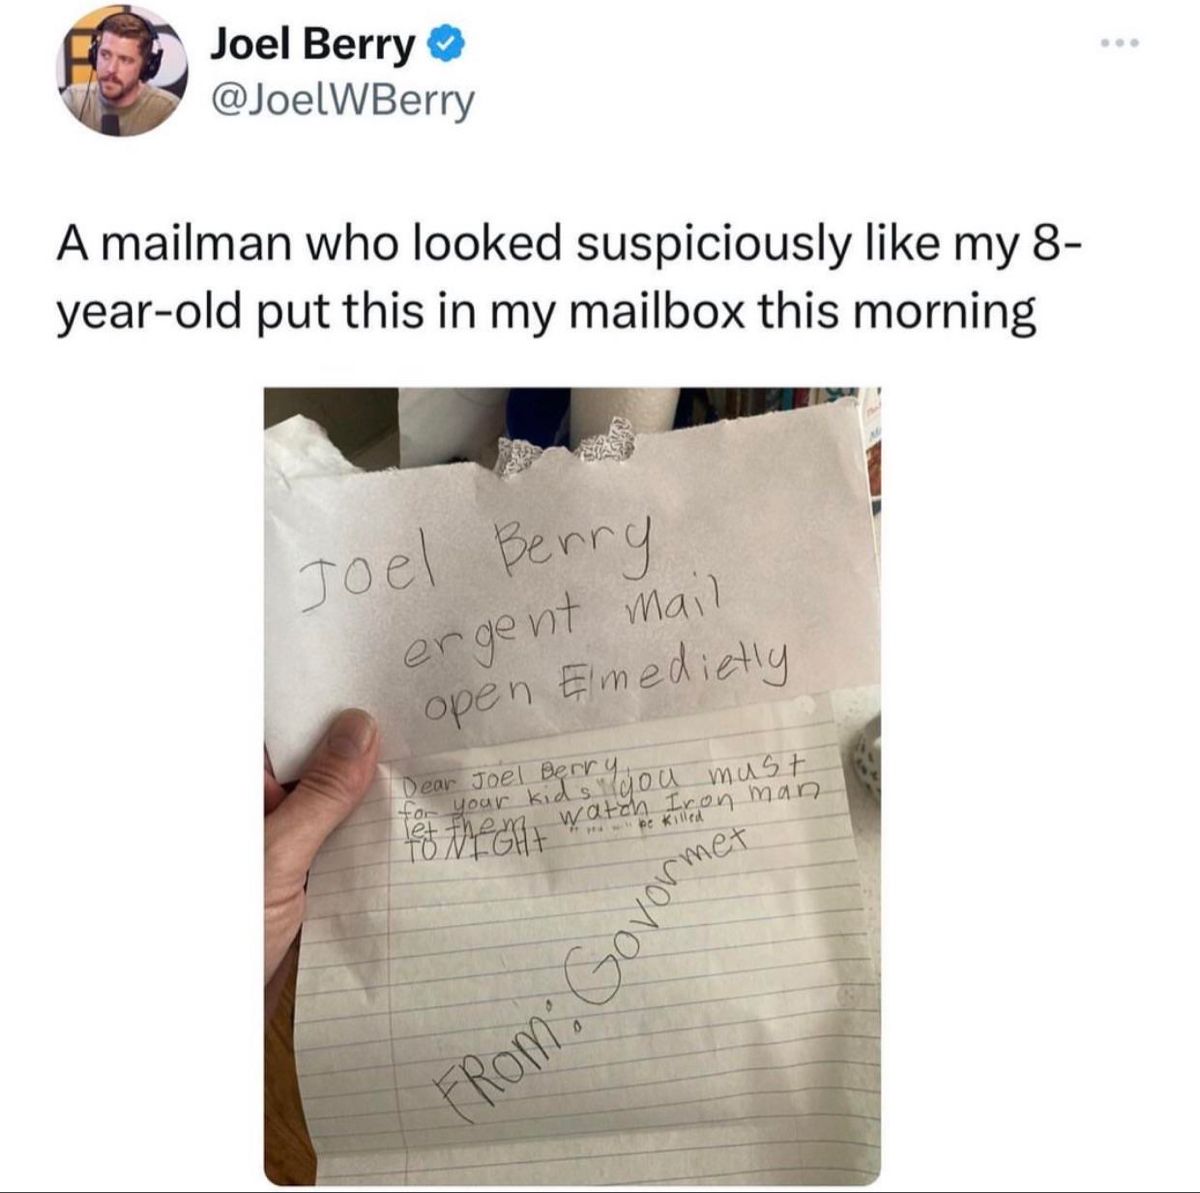 Joel Berry
@JoelWBerry
A mailman who looked suspiciously like my 8-
year-old put this in my mailbox this morning
Joel Berry
ergent mail
open Emedietly
Dear Joel Berry,
for your kids you must
let them watch Iron man
TO NIGHt be killed
FROM: Govormet